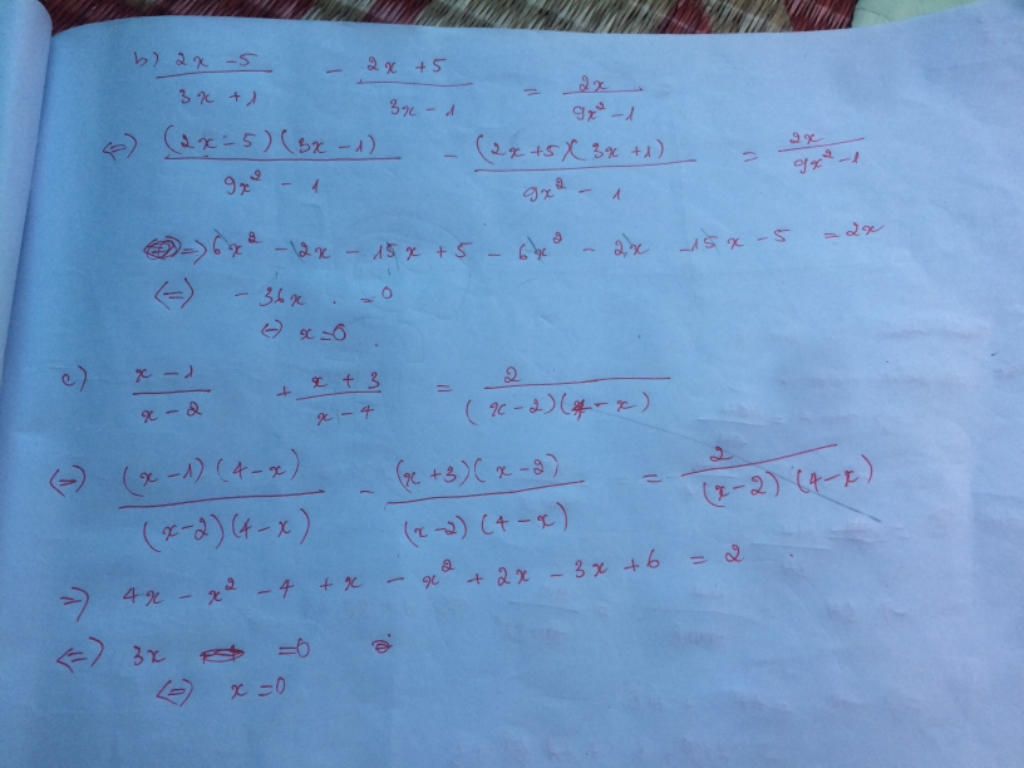 b) (2x - 5)/(3x + 1) - (2x + 5)/(3x - 1) = 2x/(9x² - 1)
(=) (2x - 5)(3x - 1)/(9x² - 1) - (2x + 5)(3x + 1)/(9x² - 1) = 2x/(9x² - 1)
=) 6x² - 2x - 15x + 5 - 6x² - 2x - 15x - 5 = 2x
(=) - 36x = 0
(=) x = 0
c) (x - 1)/(x - 2) + (x + 3)/(x - 4) = 2/((x - 2)(4 - x))
(=) (x - 1)(4 - x)/((x - 2)(4 - x)) - (x + 3)(x - 2)/((x - 2)(4 - x)) = 2/((x - 2)(4 - x))
=) 4x - x² - 4 + x - x² + 2x - 3x + 6 = 2
(=) 3x = 0
(=) x = 0